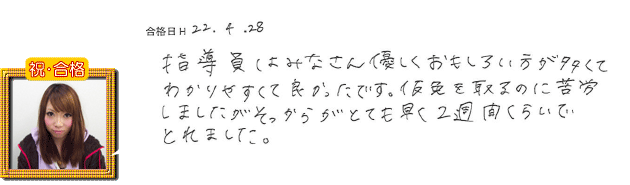 合格日 H 22.4.28
祝・合格
指導員はみなさん優しくおもしろい方が多くて
わかりやすくて良かったです。仮免を取るのに苦労
しましたがそっからがとても早く2週間くらいで
とれました。